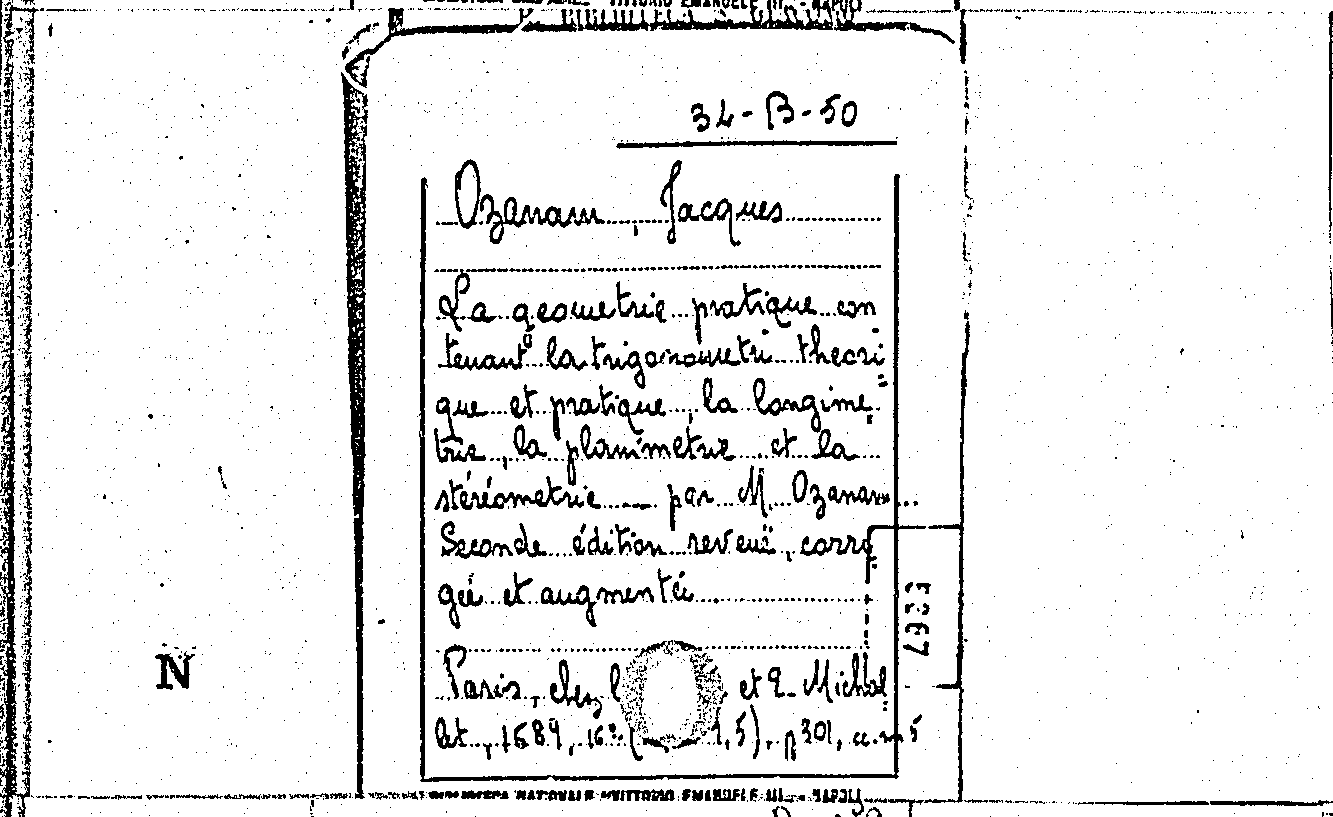 VITTORIO EMANUELE III. - NAPOLI
34-B-50
Ozanam, Jacques
La geometrie pratique con
tenant la trigonometri theori
que et pratique, la longime
trie, la planimetrie et la
stéréometrie .... par M. Ozanam...
Seconde édition reveuë, corri
geé et augmenteé
Paris, chez et E. Michal
let, 1689, 16° 1,5), p 301,
N
BIBLIOTECA NAZIONALE "VITTORIO EMANUELE III. - NAPOLI